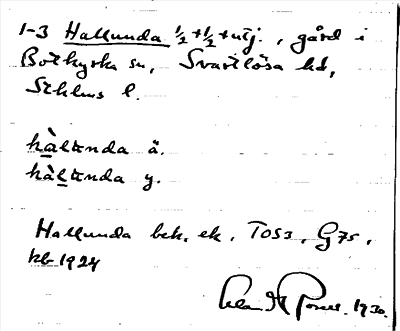 1-3 Hallunda ½+½+utj., gård i
Botkyrka sn, Svartlösa hd,
Sthlms l.
hàlunda ä.
hàlunda y.
Hallunda bek. ek. T053, G75,
kb 1924
1930.